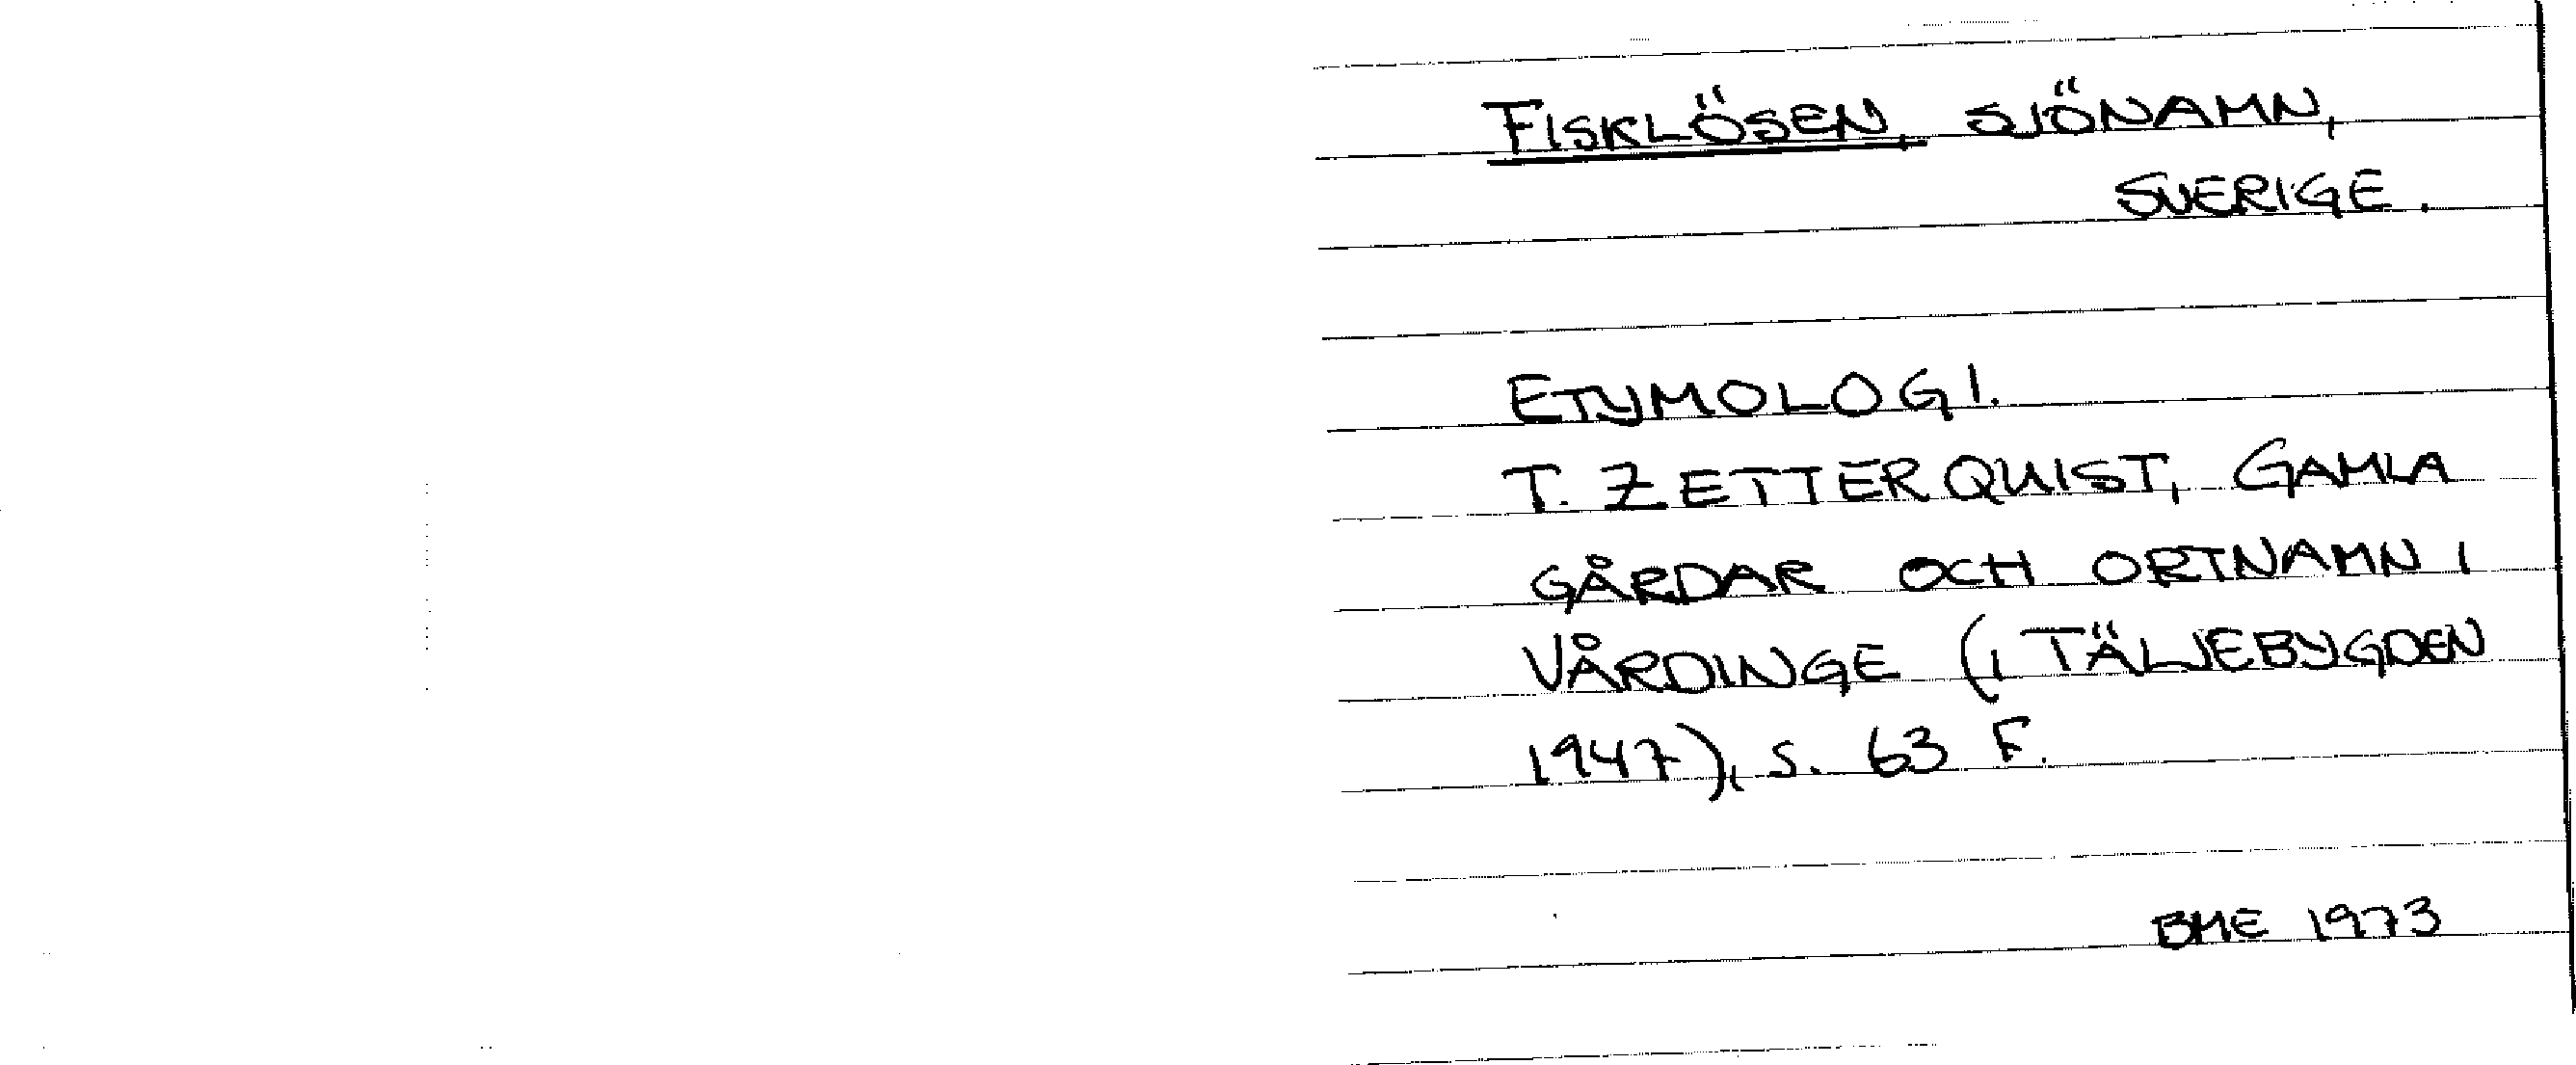 FISKLÖSEN, SJÖNAMN,
SVERIGE.
ETYMOLOGI.
T. ZETTERQUIST, GAMLA
GÅRDAR OCH ORTNAMN I
VÅRDINGE (I TÄLJEBYGDEN
1947), S. 63 F.
BME 1973